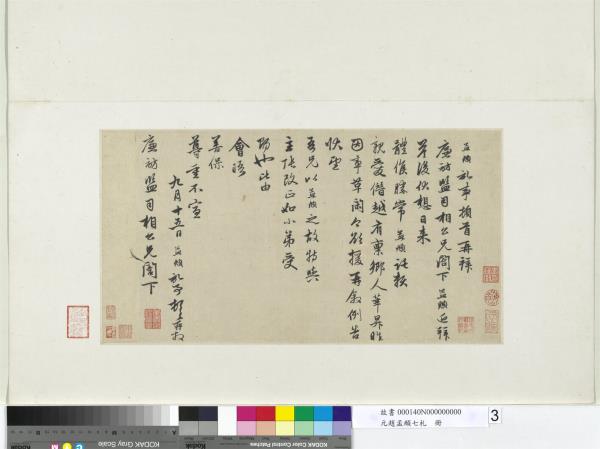 孟頫記事頓首再拜
廉訪監司相公兄閣下孟頫近拜
答後伏想日來
體候勝常孟頫託契
親愛僭越有稟鄉人華昇昨
因事革閑今欲援再敘例告
吾兄以孟頫之故特與
主張改正如小弟受
賜也比由
會晤
善保
尊重不宣
九月十五日孟頫
廉訪監司相公兄閣下
故書 000140N000000000
元趙孟頫七札 冊
3
KODAK Gray Scale
KODAK Color Control Patches
Kodak